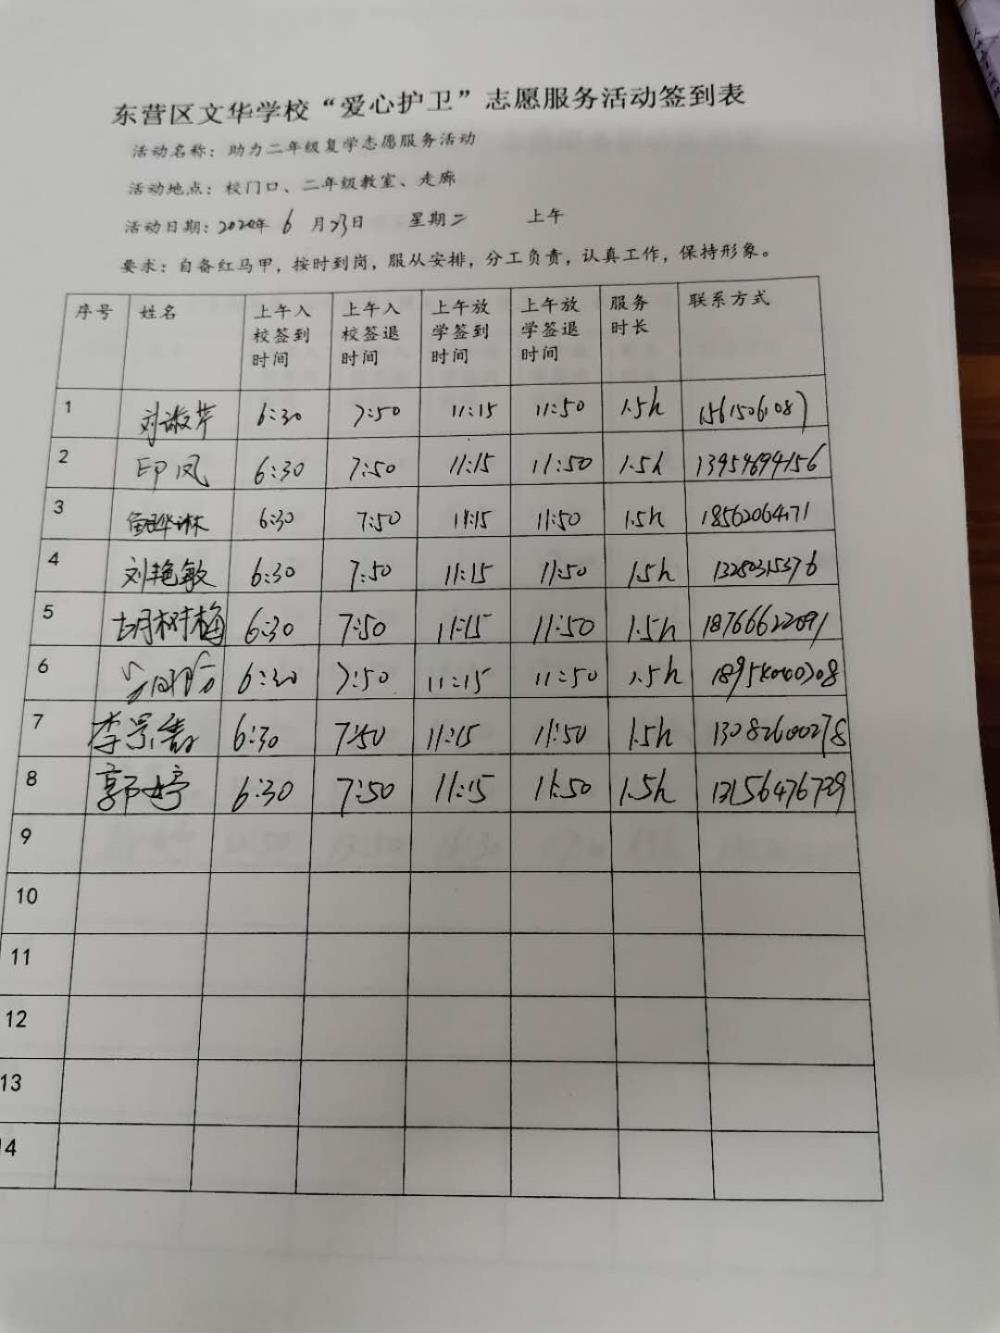 东营区文华学校“爱心护卫”志愿服务活动签到表
活动名称：助力二年级复学志愿服务活动
活动地点：校门口、二年级教室、走廊
活动日期：2020年 6 月23日 星期二 上午
要求：自备红马甲，按时到岗，服从安排，分工负责，认真工作，保持形象。
序号 姓名 上午入校签到时间 上午入校签退时间 上午放学签到时间 上午放学签退时间 服务时长 联系方式
1 刘淑芹 6:30 7:50 11:15 11:50 1.5h 15615061087
2 印凤 6:30 7:50 11:15 11:50 1.5h 13954894156
3 6:30 7:50 11:15 11:50 1.5h
4 刘艳敏 6:30 7:50 11:15 11:50 1.5h 13280315376
5 胡树梅 6:30 7:50 11:15 11:50 1.5h 18766622091
6 6:30 7:50 11:15 11:50 1.5h
7 李景 6:30 7:50 11:15 11:50 1.5h 13082600278
8 郭婷 6:30 7:50 11:15 11:50 1.5h 13156476739
9
10
11
12
13
14